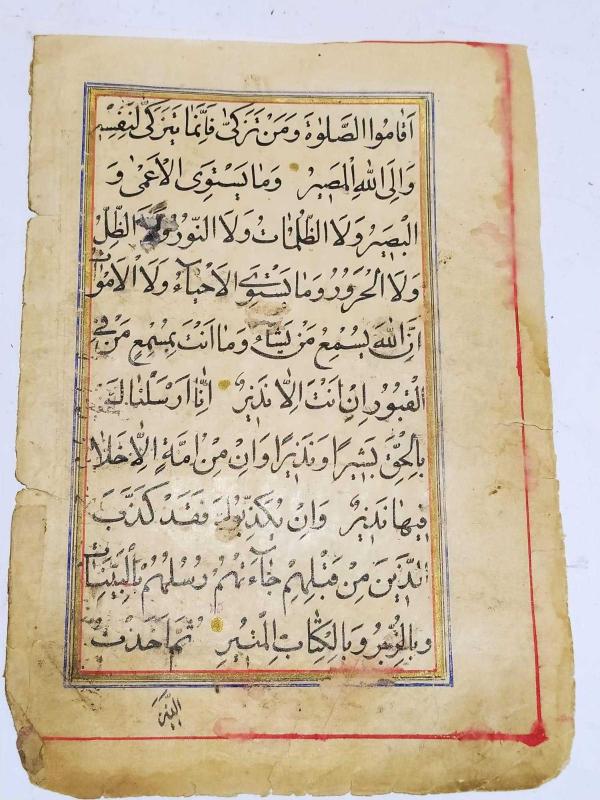 اَقامُوا الصَّلوٰةَ وَمَنْ تَزَكّٰى فَاِنَّمٰا يَتَزَكّٰى لِنَفْسِهِ
وَاِلَى اللهِ الْمَصيرُ وَمٰا يَسْتَوِى الْاَعْمٰى وَ
الْبَصيرُ وَلَا الظُّلُمٰاتُ وَلَا النّوُرُ وَلَا الظِّلُّ
وَلَا الْحَرُورُ وَمٰا يَسْتَوِى الْاَحْيٰٓاءُ وَلَا الْاَمْوٰاتُ
اِنَّ اللهَ يُسْمِعُ مَنْ يَشٰٓاءُ وَمٰا اَنْتَ بِمُسْمِعٍ مَنْ فِى
الْقُبُورِ اِنْ اَنْتَ اِلّٰا نَذيرٌ اِنّٰا اَرْسَلْنٰاكَ
بِالْحَقِّ بَشيرًا وَنَذيرًا وَاِنْ مِنْ اُمَّةٍ اِلّٰا خَلٰا
فيهٰا نَذيرٌ وَاِنْ يُكَذِّبُوكَ فَقَدْ كَذَّبَ
الَّذينَ مِنْ قَبْلِهِمْ جٰٓاءَتْهُمْ رُسُلُهُمْ بِالْبَيِّنٰاتِ
وَبِالزُّبُرِ وَبِالْكِتٰابِ الْمُنيرِ ثُمَّ اَخَذْتُ